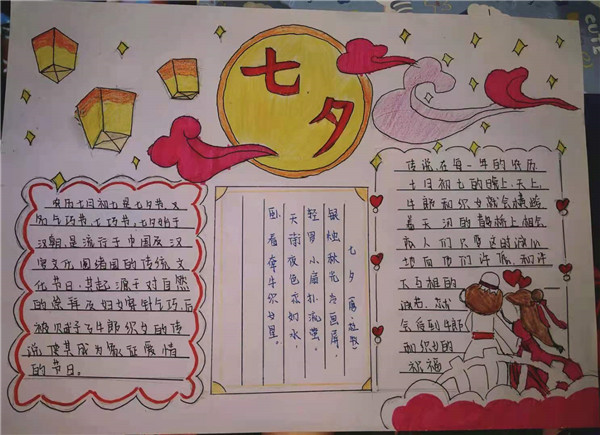 七夕
农历七月初七是七夕节,又
名乞巧节、七巧节,七夕始于
汉朝,是流行于中国及汉
字文化圈诸国的传统文
化节日,其起源于对自然
的崇拜及妇女穿针乞巧,后
被赋予了牛郎织女的传
说使其成为象征爱情
的节日。
七夕(唐·杜牧)
银烛秋光冷画屏,
轻罗小扇扑流萤。
天街夜色凉如水,
卧看牵牛织女星。
传说,在每一年的农历
七月初七的晚上,天上
牛郎和织女就会横越
着天河的鹊桥上相会
故人们只要这时诚心
地向他们许愿,和许
下与相的
会得到牛郎
和织女的
祝福
CUTE